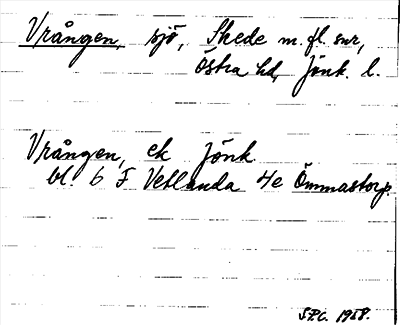 Vrången, sjö, Skede m. fl. snr,
Östra hd, Jönk. l.
Vrången, ek Jönk
bl. 6 F Vetlanda 4e Ömmastorp.
S.P.C. 1958.